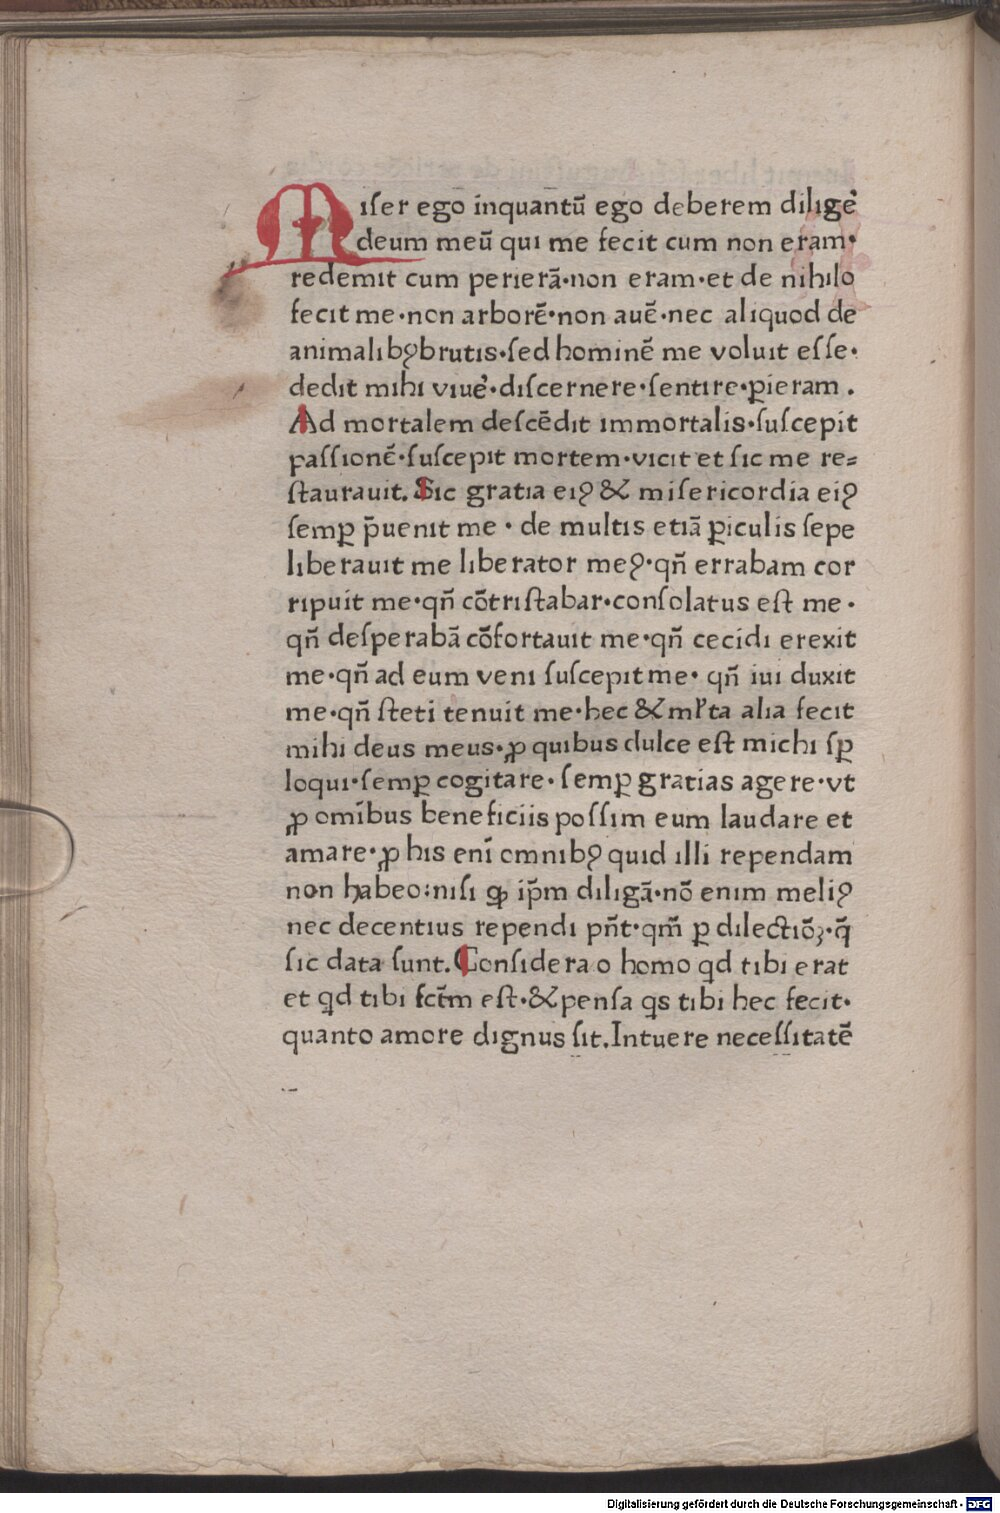 Miser ego inquantū ego deberem diligē
deum meū qui me fecit cum non eram·
redemit cum perierā·non eram·et de nihilo
fecit me·non arborē·non auē·nec aliquod de
animalibꝰ brutis·ſed hominē me voluit eſſe·
dedit mihi viue᷑·diſcernere·ſentire·ꝑieram .
Ad mortalem deſcēdit immortalis·ſuſcepit
paſſionē·ſuſcepit mortem·vicit et ſic me re=
ſtaurauit. Sic gratia eiꝰ & miſericordia eiꝰ
ſemꝑ p̄uenit me · de multis etiā ꝑiculis ſepe
liberauit me liberator meꝰ·qn̄ errabam cor
ripuit me·qn̄ cōtriſtabar·conſolatus eſt me ·
qn̄ deſperabā cōfortauit me·qn̄ cecidi erexit
me·qn̄ ad eum veni ſuſcepit me· qn̄ iui duxit
me·qn̄ ſteti tenuit me·hec & ml̓ta alia fecit
mihi deus meus·ꝓ quibus dulce eſt michi ſꝑ
loqui·ſemꝑ cogitare· ſemꝑ gratias agere·vt
ꝓ omībus beneficiis poſſim eum laudare et
amare·ꝓ his enī omnibꝰ quid illi rependam
non habeo:niſi ꝙ ip̄m diligā·nō enim meliꝰ
nec decentius rependi pn̄t·qm̄ ꝑ dilectiōꝫ·q̄
ſic data ſunt. Conſidera o homo qd tibi erat
et qd tibi fctm̄ eſt·& penſa qs tibi hec fecit·
quanto amore dignus ſit. Intuere neceſſitatē
Digitalisierung gefördert durch die Deutsche Forschungsgemeinschaft - DFG